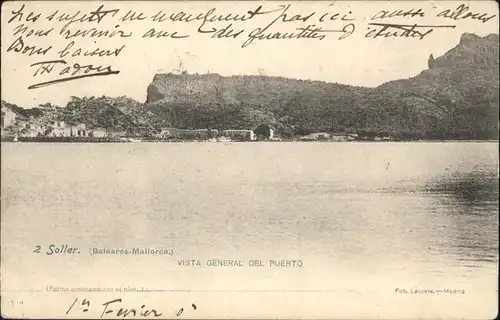 Les sujets ne manquent pas ici, aussi allons
Nous revenir avec des quantités d'études
Bons baisers
2 Soller. (Baleares-Mallorca.)
VISTA GENERAL DEL PUERTO
(Forma panoramica con el núm. 1.)
Fot. Lacoste.—Madrid
1er Février 0